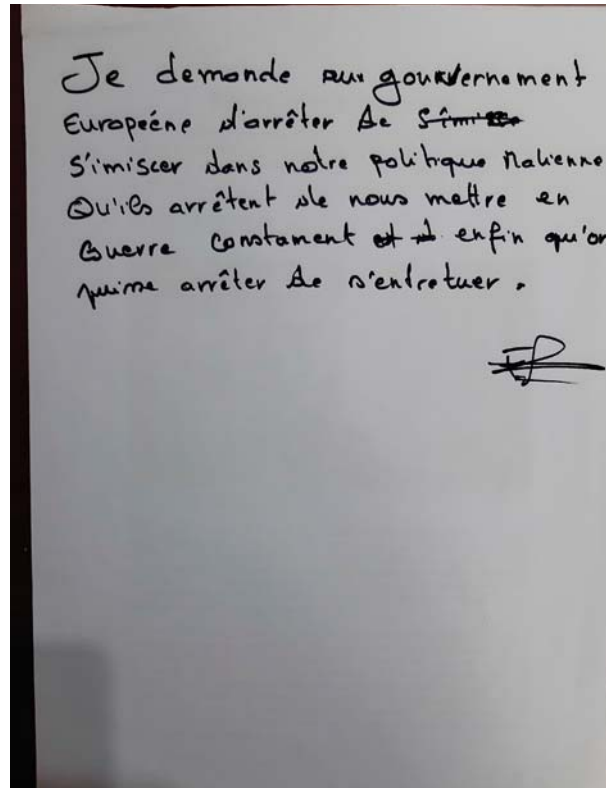 Je demande aux gouvernement
Européene d'arrêter de
S'imiscer dans notre politique Malienne
Qu'ils arrêtent de nous mettre en
Guerre constament enfin qu'on
puisse arrêter de s'entretuer.